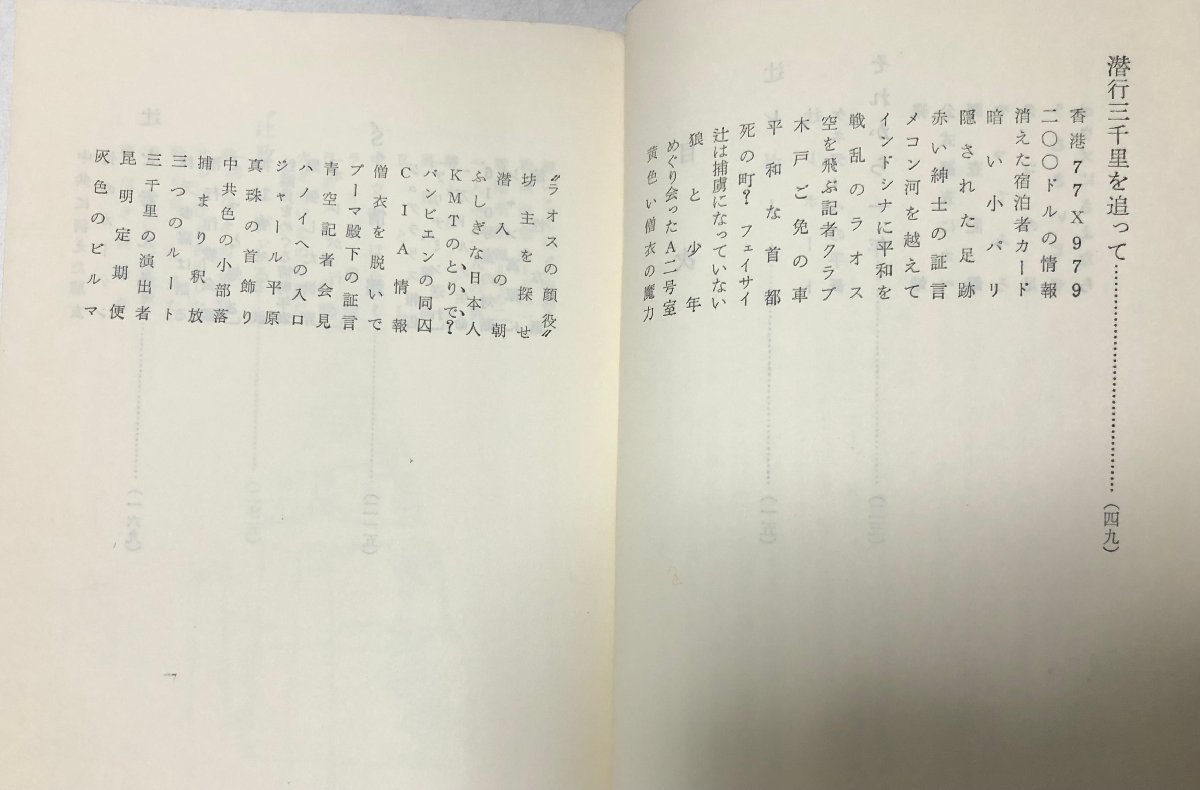 潜行三千里を追って……………………………………(四九)
香港77X979
二〇〇ドルの情報
消えた宿泊者カード
暗い小パリ
隠された足跡
赤い紳士の証言
メコン河を越えて
インドシナに平和を
戦乱のラオス
空を飛ぶ記者クラブ
木戸ご免の車
平和な首都
死の町？フェイサイ
辻は捕虜になっていない
狼と少年
めぐり会ったA二号室
黄色い僧衣の魔力
〝ラオスの顔役〟
坊主を探せ
潜入の朝
ふしぎな日本人
KMTのとりで？
バンビエンの同囚
CIA情報
僧衣を脱いで
プーマ殿下の証言
青空記者会見
ハノイへの入口
ジャール平原
真珠の首飾り
中共色の小部落
捕まり釈放
三つのルート
三千里の演出者
昆明定期便
灰色のビルマ